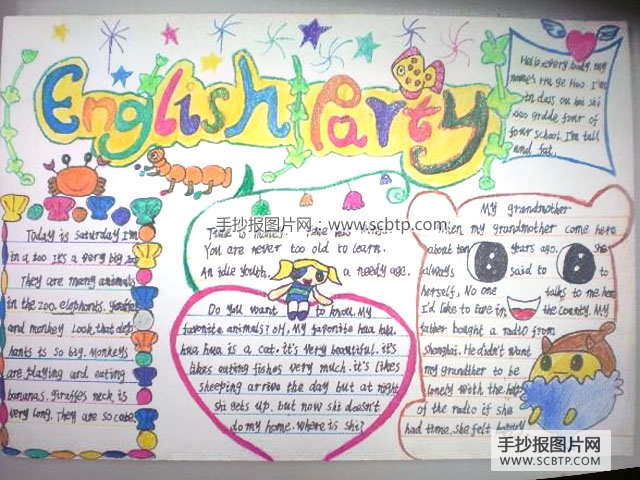 English Party
Hello every body. My
name's Hu Ge Hao. I'm
in class
grade four of
four school. I'm tall
and fat.
Today is saturday I'm
in a zoo It's a very big zoo
They are many animals
in the zoo. elephants. giraffes
and monkey Look, that elep
hants is so big. Monkeys
are playing and eating
bananas. giraffes neck is
very long. They are so cute.
手抄报图片网：www.scbtp.com
Time is money.
You are never too old to learn.
An idle youth, a needy age.
Do you want to know. My
favorite animals? Oh, My faforite hua hua.
hua hua is a cat. it's very beautiful. it's
likes eating fishes very much. it's likes
sheeping arrive the day but at night
shi gets up. but now shi doesn't
do my home. Where is shi?
My grandmother
When my grandmother come here
about ten years ago. she
always said to to
herself, No one talks to me here
I'd like to live in the country. My
father bought a radio from
Shanghai. He didn't want
my grandther to be
lonely With the help
of the radio if she
had time. she felt happy
手抄报图片网
WWW.SCBTP.COM